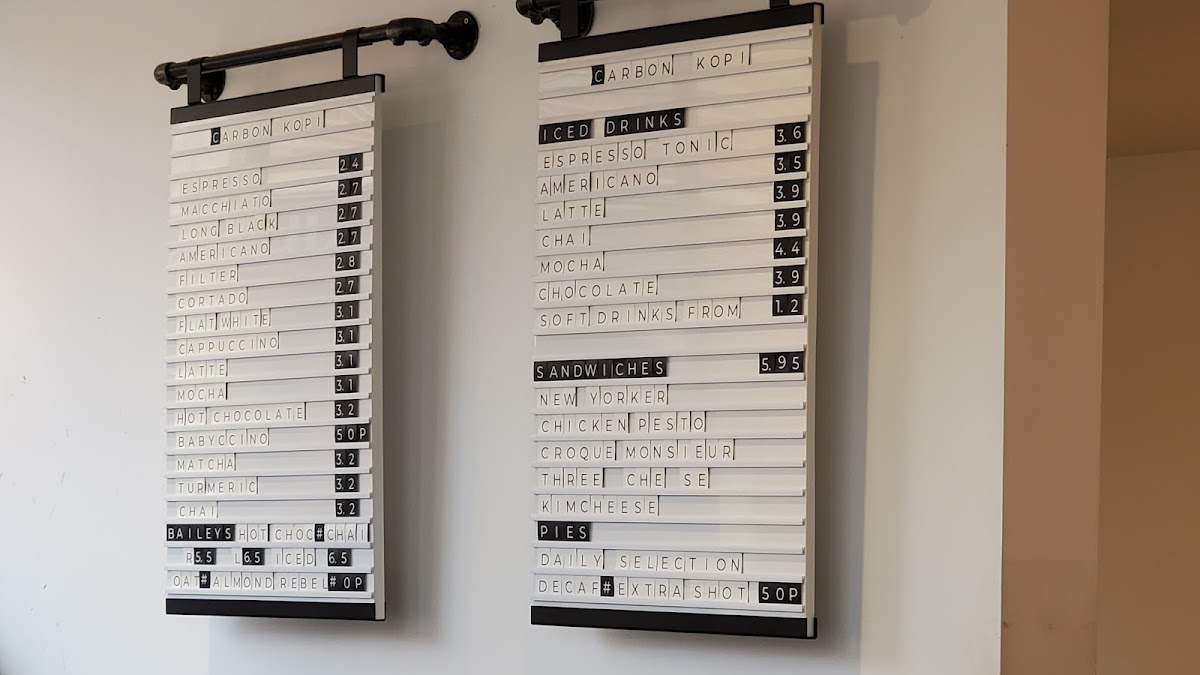 CARBON KOPI
ESPRESSO 2.4
MACCHIATO 2.7
LONG BLACK 2.7
AMERICANO 2.7
FILTER 2.8
CORTADO 2.7
FLAT WHITE 3.1
CAPPUCCINO 3.1
LATTE 3.1
MOCHA 3.1
HOT CHOCOLATE 3.2
BABYCCINO 50P
MATCHA 3.2
TURMERIC 3.2
CHAI 3.2
BAILEYS HOT CHOC#CHAI
R 5.5 L 6.5 ICED 6.5
OAT#ALMOND REBEL# 0P
CARBON KOPI
ICED DRINKS
ESPRESSO TONIC 3.6
AMERICANO 3.5
LATTE 3.9
CHAI 3.9
MOCHA 4.4
CHOCOLATE 3.9
SOFT DRINKS FROM 1.2
SANDWICHES 5.95
NEW YORKER
CHICKEN PESTO
CROQUE MONSIEUR
THREE CHE SE
KIMCHEESE
PIES
DAILY SELECTION
DECAF#EXTRA SHOT 50P